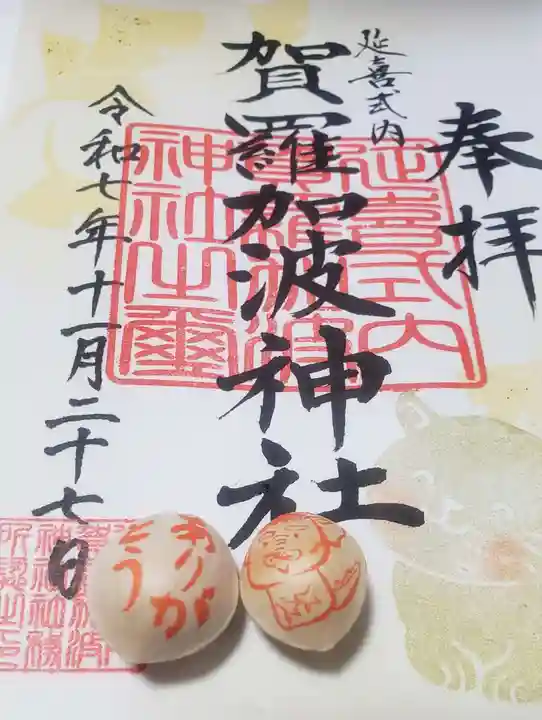 奉拝
延喜式内
賀羅加波神社
延喜式内
賀羅加波
神社之璽
令和七年十一月二十七日
ありが
とう